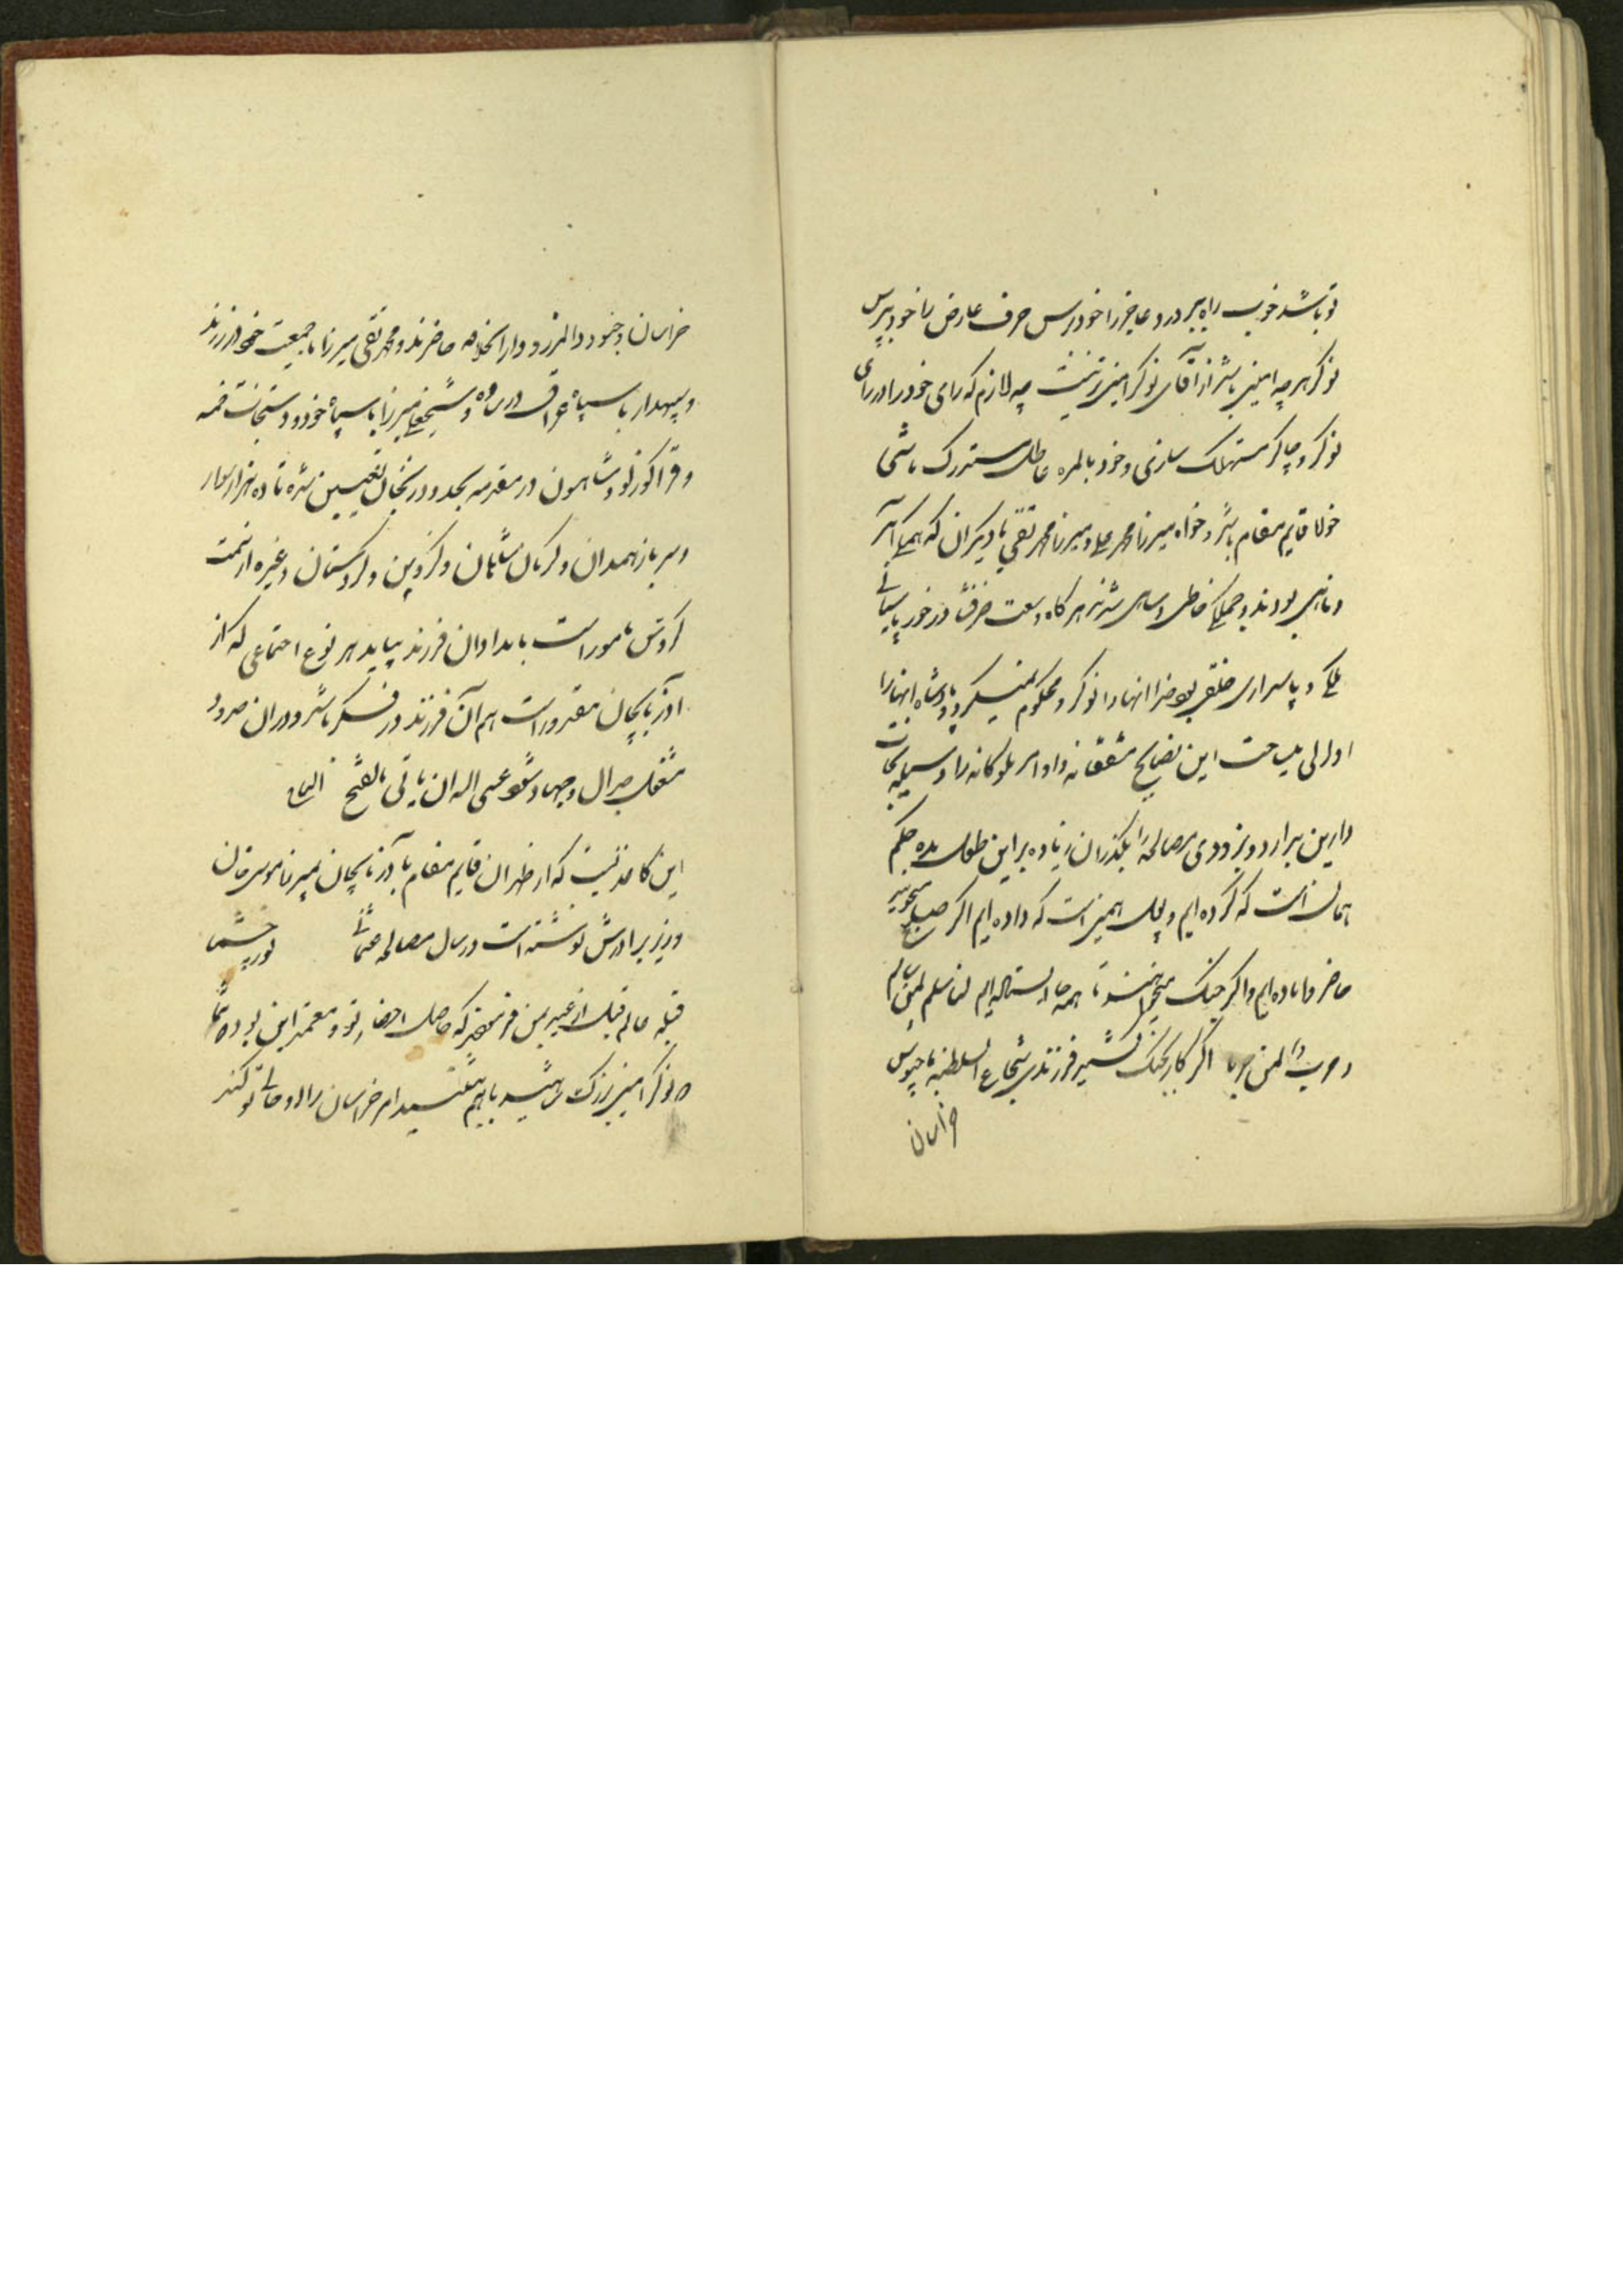 تو باشد خوب راه ببر درد عاجز را خود برس حرف عارض را خود بپرس
نوکر هر چه امین باشد از آقای نوکر امین تر نیست چه لازم که رای خود را در رای
نوکر و چاکر مستهلک سازی و خود بالمره عاطل و مستدرک باشی
خواه قایم مقام باشد و خواه میرزا محمد علی و میرزا محمد تقی یا دیگران که همیکی آمر
و ناهی بودند و جملگی خاطی و ساهی شدند هر گاه وسعت ظرفشان در خور پاسبانی
ملکی و پاسداری خلقی بود خدا آنها را نوکر و محکوم نمیکرد و پادشاه آنها را
اولی للیاحت این نصایح مشفقانه و اوامر ملوکانه را وسیله نجات
دارین بردار و بزودی مصالحه را بگذران زیاده بر این طول مده حکم
همان است که کرده ایم و پول همین است که داده ایم اگر صلح میجویید
حاضر و آماده ایم و اگر جنگ میخواهند تا همه جا ایستاده ایم انا سلم لمن سالم
و حرب لمن حارب اگر کار بجنگ کشید فرزندی شجاع السلطنه با جیوش
خراسان
خراسان و جنود دار المرز و دار الخلافه حاضرند و محمد تقی میرزا با جمعیت خود در زرند
و سپهدار با سپاه عراق در ساوه و شیخعلی میرزا با سپاه خود و دستجات خمسه
و قراگوزلو و شاهسون در مقدمه بحدود زنجان تعیین شده تا ده هزار سوار
و سرباز همدان و کرمانشاهان و گزوین و کردستان و غیره از سمت
گروس مامور است بامداد آن فرزند بیاید هر نوع اجتماعی که از
آذربایجان مقدور است هم آن فرزند در فکر باشد و در آن حدود
مشغول جدال و جهاد شود عسی الله ان یاتی بالفتح
این کاغذیست که از طهران قایم مقام بآذربایجان بمیرزا موسی خان
وزیر برادرش نوشته است در سال مصالحه نور چشما
قبله عالم قبل از غیر بمن فرمودند که حاصل احضار تو و معتمد این بود که شما
دو نوکر امین بزرگ باهم بنشینید امر خراسان را حالی تو کند